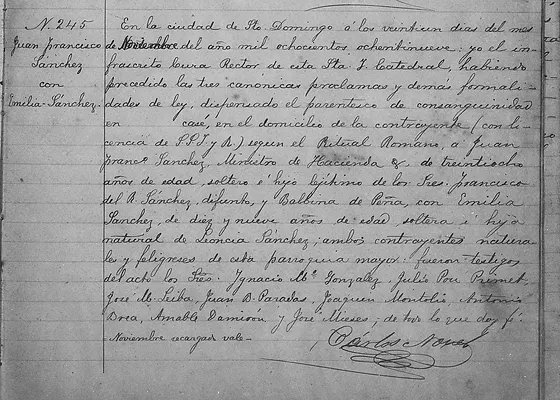 N. 245
Juan Francisco
Sanchez
con
Emilia Sánchez.
En la ciudad de Sto. Domingo á los veintiun dias del mes
de Noviembre del año mil ochocientos ochentinueve: yo el in-
frascrito Cura Rector de esta Sta. I. Catedral, habiendo
precedido las tres canonicas proclamas y demas formali-
dades de ley, dispensado el parentesco de consanguinidad
en casé, en el domicilio de la contrayente (con li-
cencia de S.S.I. y R.) segun el Ritual Romano, a Juan
Francº Sanchez, Ministro de Hacienda &, de treintiocho
años de edad, soltero é hijo lejítimo de los Sres. Francisco
del R. Sánchez, difunto, y Balbina de Peña, con Emilia
Sanchez, de diez y nueve años de edad soltera é hija
natural de Leoncia Sánchez; ambos contrayentes natura-
les y feligreses de esta parroquia mayor: fueron testigos
del acto los Sres: Ygnacio Mª Gonzalez, Julio Pou,
José M. Leiba, Juan B. Paradas, Joaquin Montolio, Antonio
Amable Damirón, y José Mieses; de todo lo que doy fé.
Noviembre recargado vale-
Carlos Nouel